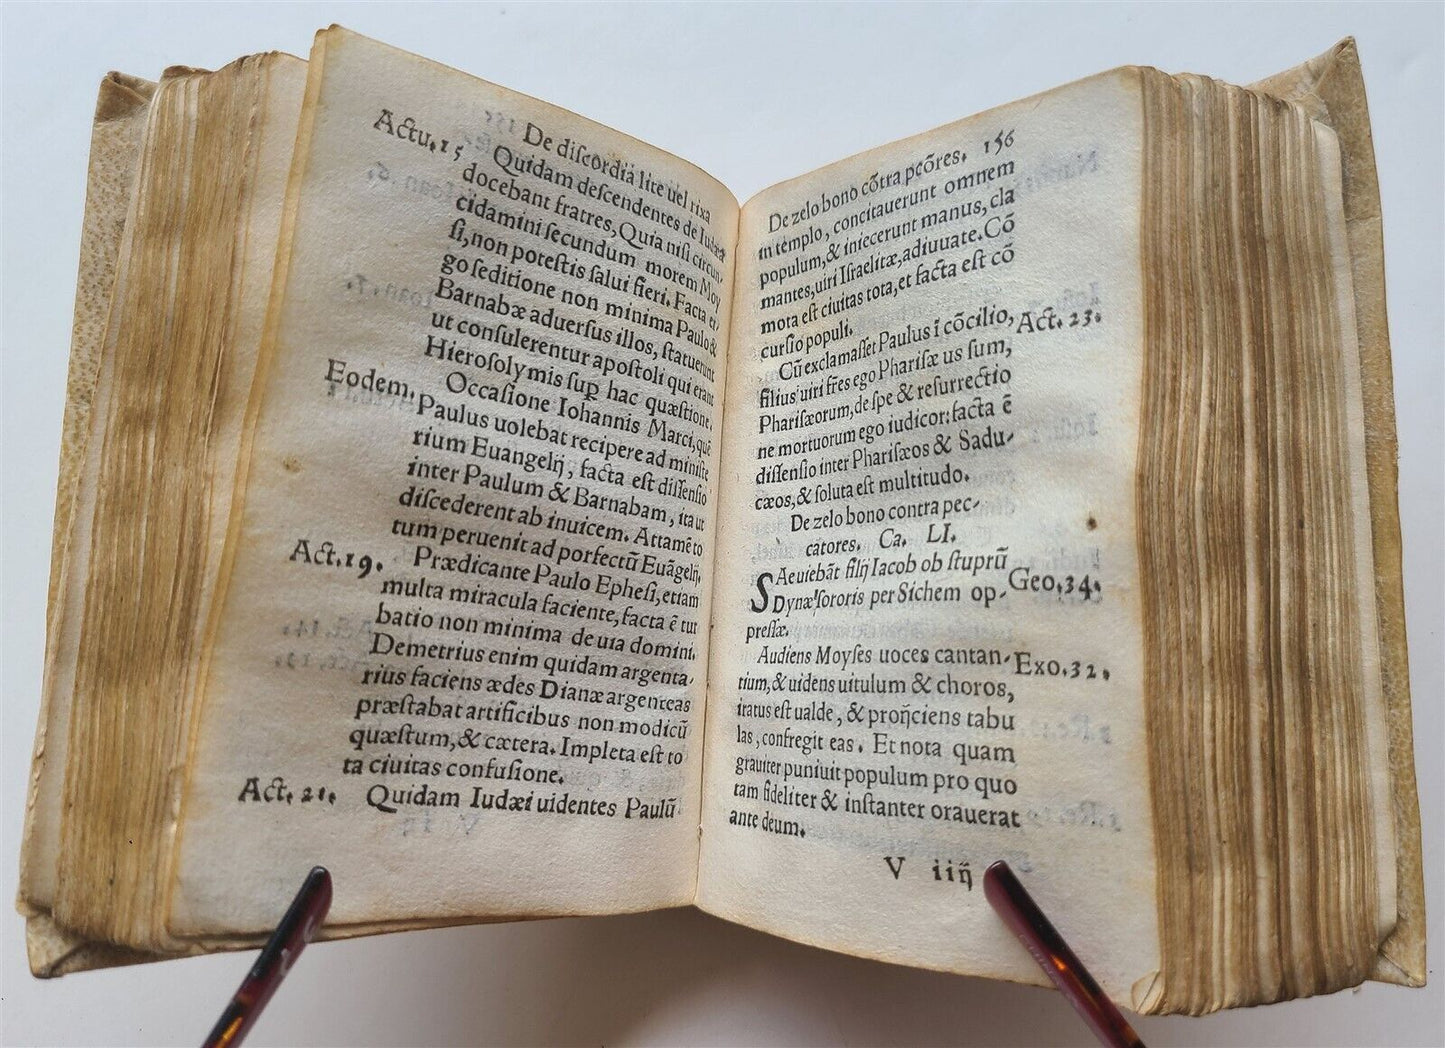 De diſcordia lite uel rixa
Actu.15 Quidam deſcendentes de Iudæa
docebant fratres, Quia niſi circun⸗
cidamini ſecundum morem Moy
ſi, non poteſtis ſalui fieri. Facta er⸗
go ſeditione non minima Paulo &
Barnabæ aduerſus illos, ſtatuerunt
ut conſulerentur apoſtoli qui erant
Hieroſolymis ſuꝑ hac quæſtione.
Eodem. Occaſione Iohannis Marci, quē
Paulus uolebat recipere ad miniſte
rium Euangelij, facta eſt diſſenſio
inter Paulum & Barnabam, ita ut
diſcederent ab inuicem. Attamē to
tum peruenit ad porfectū Euāgelij.
Act.19. Prædicante Paulo Epheſi, etiam
multa miracula faciente, facta ē tur
batio non minima de uia domini.
Demetrius enim quidam argenta⸗
rius faciens ædes Dianæ argenteas
præſtabat artificibus non modicū
quæſtum, & cætera. Impleta eſt to
ta ciuitas confuſione.
Act. 21. Quidam Iudæi uidentes Paulū
De zelo bono cōtra pcōres. 156
in templo, concitauerunt omnem
populum, & iniecerunt manus, cla
mantes, uiri Iſraelitæ, adiuuate. Cō
mota eſt ciuitas tota, et facta eſt cō
curſio populi.
Cū exclamaſſet Paulus ī cōcilio, Act. 23.
filius uiri fr̄es ego Phariſæus ſum,
Phariſæorum, de ſpe & reſurrectio
ne mortuorum ego iudicor: facta ē
diſſenſio inter Phariſæos & Sadu⸗
cæos, & ſoluta eſt multitudo.
De zelo bono contra pec⸗
catores. Ca. LI.
SAeuiebāt filij Iacob ob ſtuprū Geo.34.
Dynæ ſororis per Sichem op⸗
preſſæ.
Audiens Moyſes uoces cantan⸗ Exo.32.
tium, & uidens uitulum & choros,
iratus eſt ualde, & proijciens tabu
las, confregit eas. Et nota quam
grauiter puniuit populum pro quo
tam fideliter & inſtanter orauerat
ante deum.
V iiij